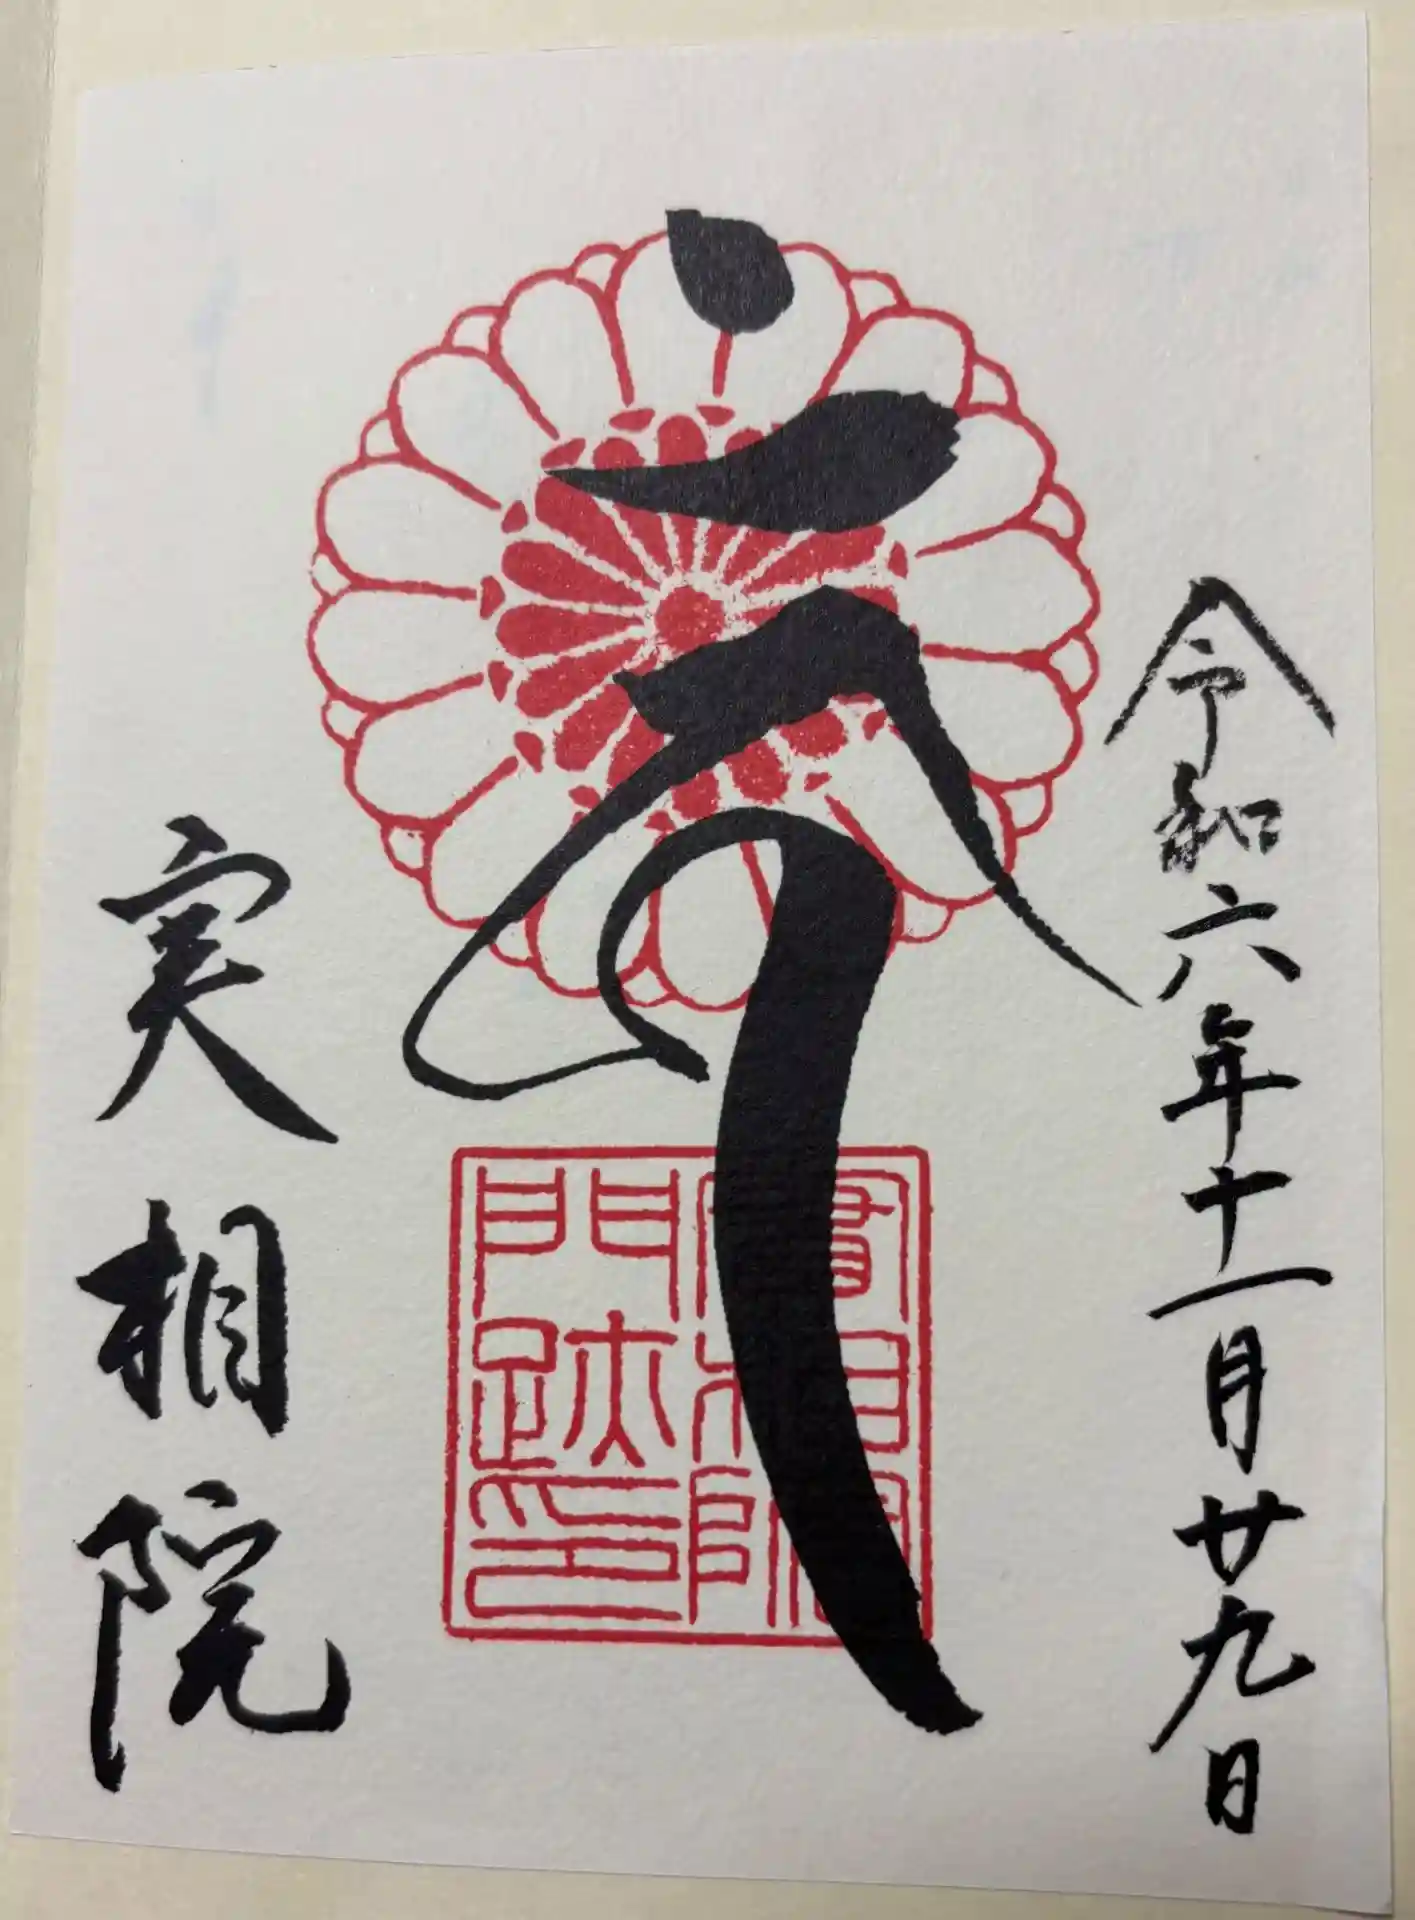 令和六年十一月廿九日
實相院
門跡印
実相院